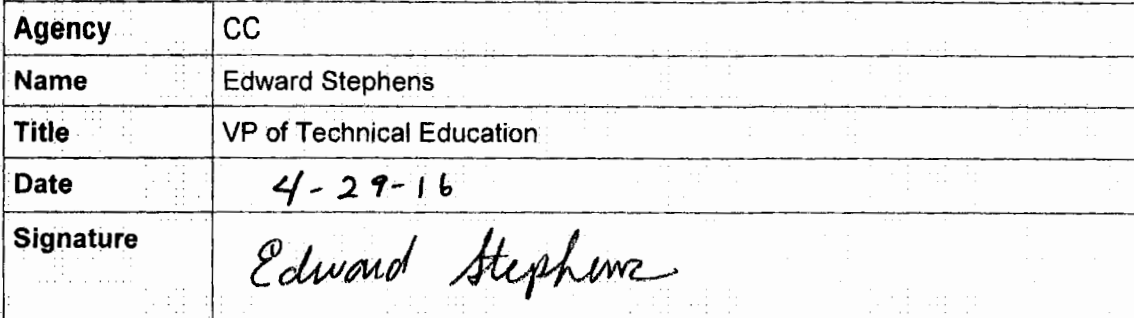 Agency CC
Name Edward Stephens
Title VP of Technical Education
Date 4-29-16
Signature Edward Stephens